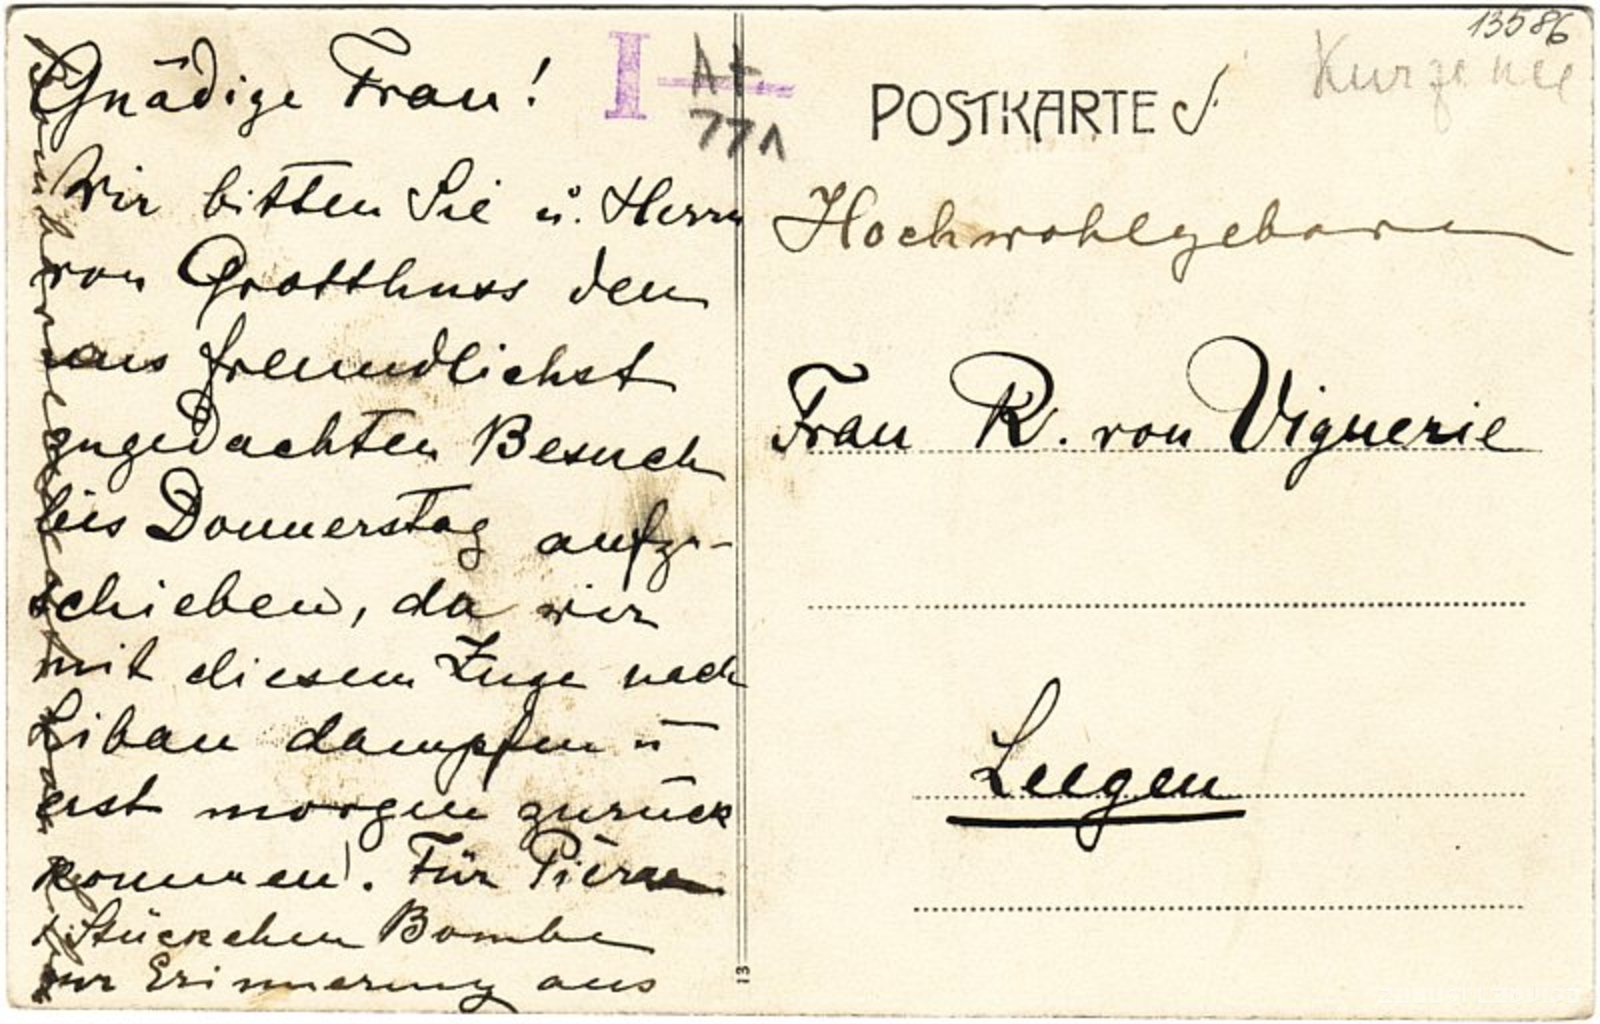 Gnädige Frau!
Wir bitten Sie u. Herrn
von Grotthuss den
uns freundlichst
zugedachten Besuch
bis Donnerstag aufzu-
schieben, da wir
mit diesem Zuge nach
Libau dampfen u
erst morgen zurück
kommen. Für Pierre
1 Stückchen Bombe
zur Erinnerung aus
I
A+
771
13
13586
POSTKARTE
Hochwohlgeboren
Frau R. von Vignerie
Leegen